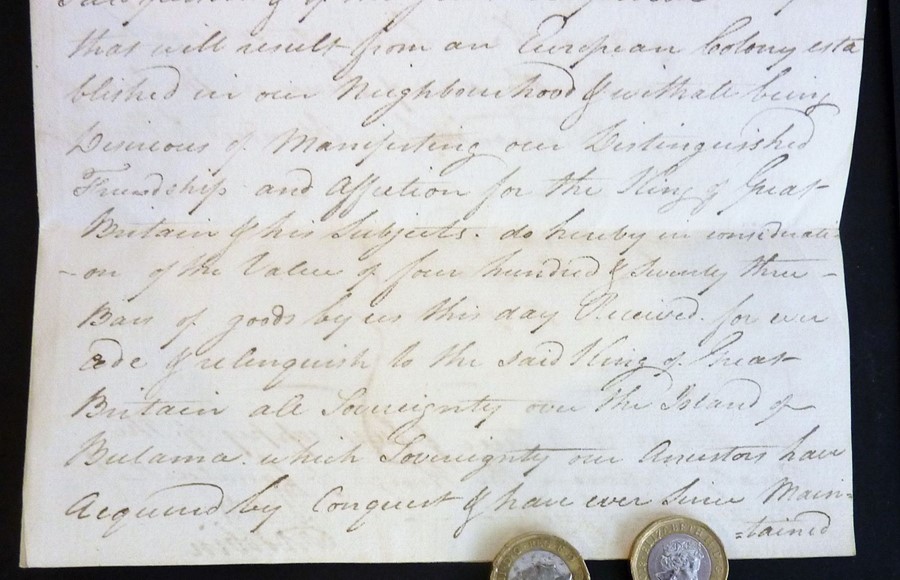 that will result from an European Colony esta
blished in our Neighbourhood & withall being
Desirious of Manifesting our Distinguished
Friendship and Affection for the King of Great
Britain & his Subjects. do hereby in considerati
-on of the Value of four hundred & Twenty three -
Bars of goods by us this day Received. for ever
cede & relinquish to the said King of Great
Britain all Sovereignty over the Island of
Bulama. which Sovereignty our Ancestors have
Acquired by Conquest & have ever Since Main=
=tained
ELIZABETH II